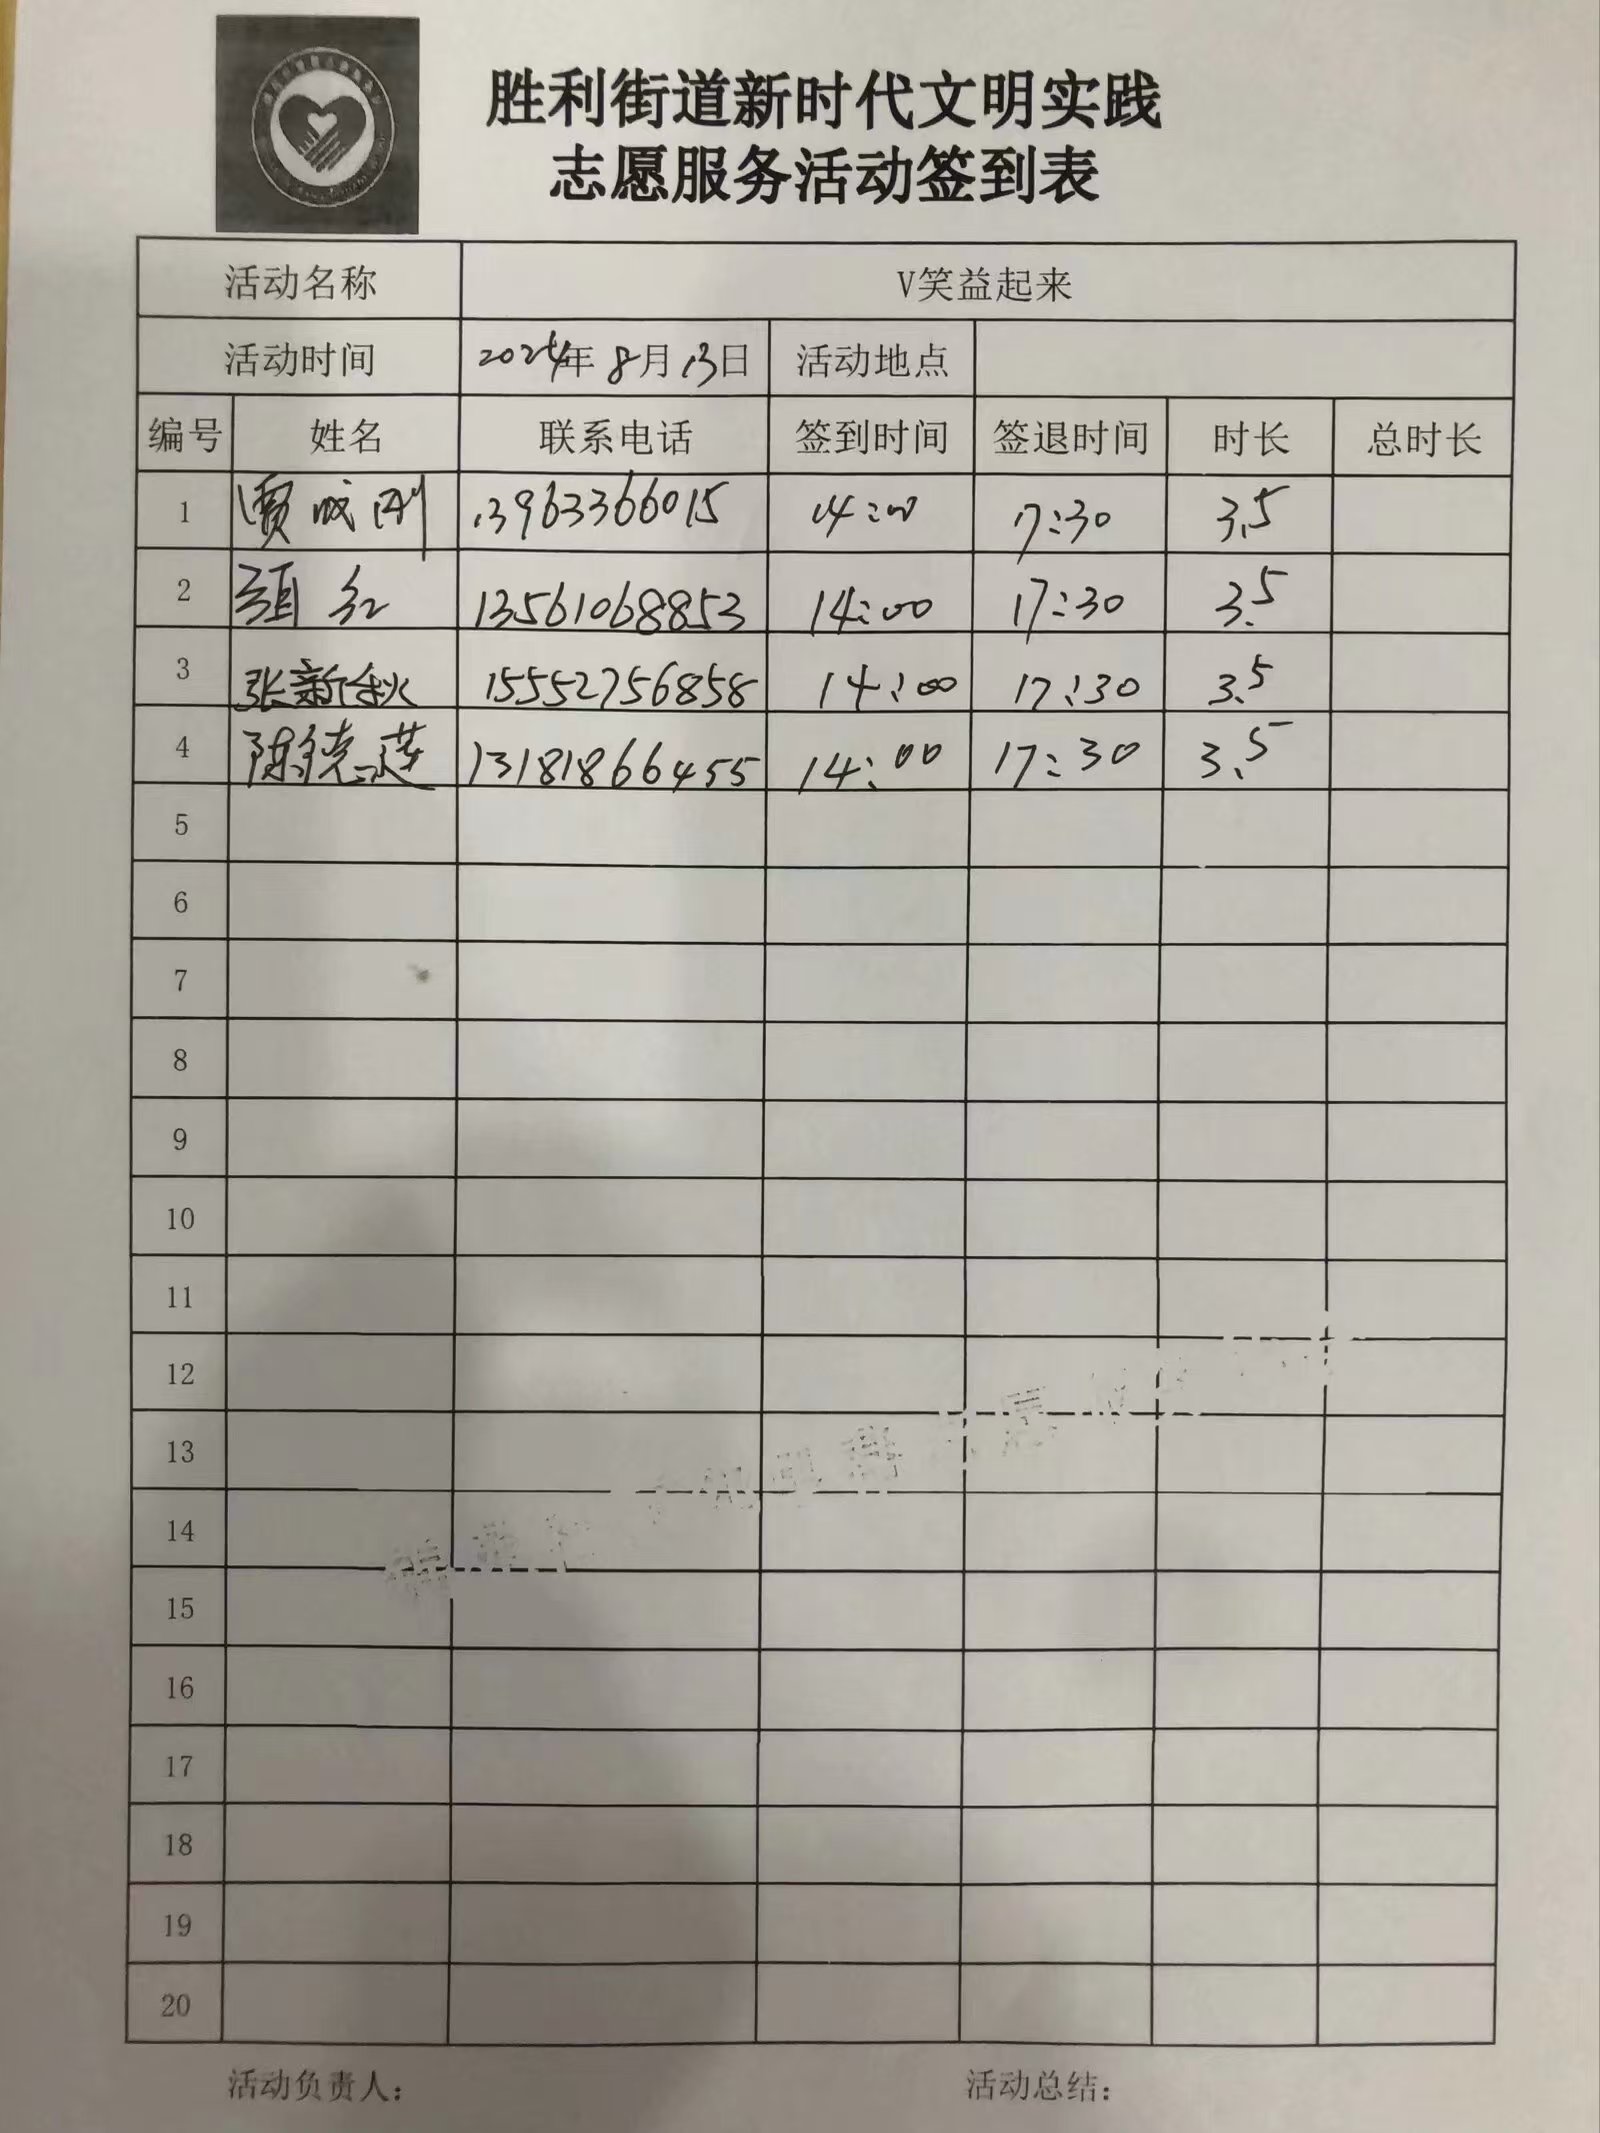 胜利街道新时代文明实践
志愿服务活动签到表
活动名称 V笑益起来
活动时间 2024年 8月 13日 活动地点
编号 姓名 联系电话 签到时间 签退时间 时长 总时长
1 贾成刚 13963366015 14:00 17:30 3.5
2 红 13561068853 14:00 17:30 3.5
3 张新秋 15552756858 14:00 17:30 3.5
4 陈德莲 13181866455 14:00 17:30 3.5
5
6
7
8
9
10
11
12
13
14
15
16
17
18
19
20
活动负责人: 活动总结: